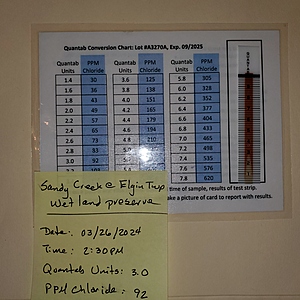 Quantab Conversion Chart: Lot #A3270A, Exp. 09/2025
Quantab Units PPM Chloride Quantab Units PPM Chloride Quantab Units PPM Chloride
1.4 30 3.6 125 5.8 305
1.6 36 3.8 138 6.0 328
1.8 43 4.0 151 6.2 352
2.0 49 4.2 165 6.4 377
2.2 57 4.4 179 6.6 404
2.4 65 4.6 194 6.8 433
2.6 73 4.8 210 7.0 465
2.8 83 7.2 498
3.0 92 7.4 535
7.6 576
7.8 620
time of sample, results of test strip.
ake a picture of card to report with results.
Sandy Creek @ Elgin Twp
Wetland preserve
Date: 03/26/2024
Time: 2:30PM
Quantab Units: 3.0
PPM Chloride: 92